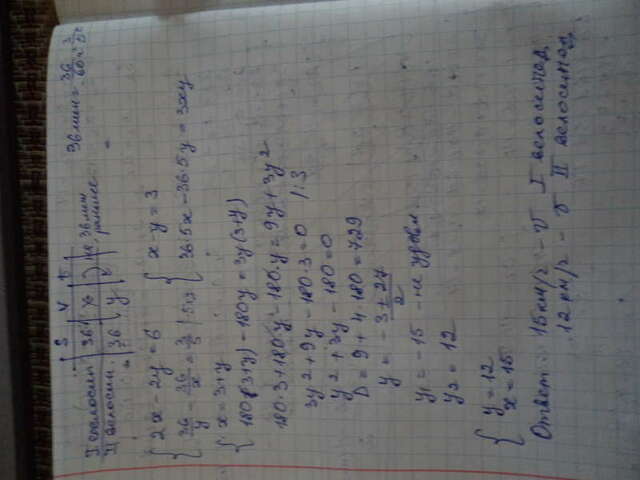 S V t
I велосип. 36 x на 36 мин раньше 36 мин = 36/60 = 3/5
II велосип. 36 y
{ 2x - 2y = 6 { x - y = 3
{ 36/y - 36/x = 3/5 | 5xy { 36·5x - 36·5y = 3xy
{ x = 3+y
{ 180(3+y) - 180y = 3y(3+y)
180·3 + 180y - 180y = 9y + 3y²
3y² + 9y - 180·3 = 0 |:3
y² + 3y - 180 = 0
D = 9 + 4·180 = 729
y = -3 ± 27/2
y₁ = -15 - не удовл.
y₂ = 12
{ y = 12
{ x = 15
Ответ: 15 км/г - V I велосипед.
12 км/г - V II велосипед.